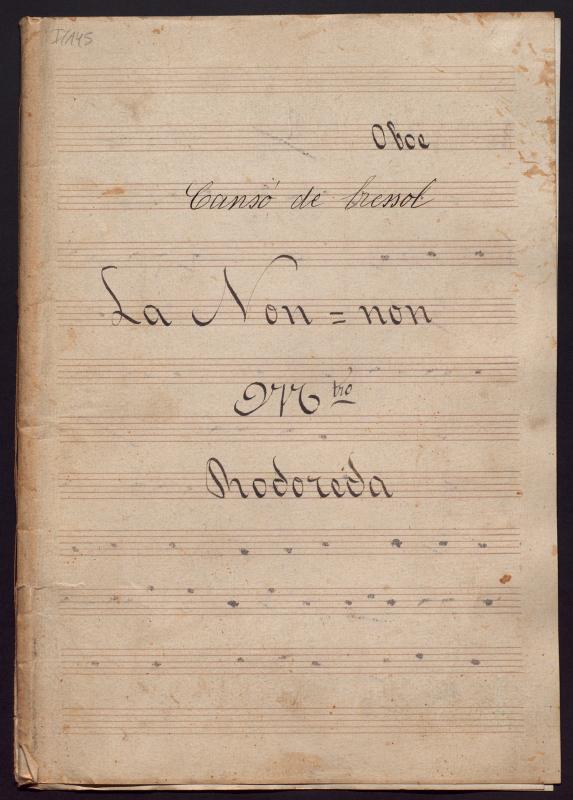 I/145
Oboe
Cansó de bressol
La Non=non
Mtro
Rodoreda